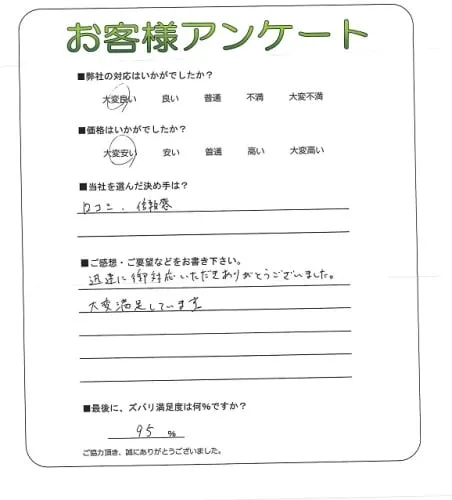 お客様アンケート
■弊社の対応はいかがでしたか？
大変良い 良い 普通 不満 大変不満
■価格はいかがでしたか？
大変安い 安い 普通 高い 大変高い
■当社を選んだ決め手は？
口コミ、信頼感
■ご感想・ご要望などをお書き下さい。
迅速に御対応いただきありがとうございました。
大変満足しています
■最後に、ズバリ満足度は何％ですか？
95 ％
ご協力頂き、誠にありがとうございました。